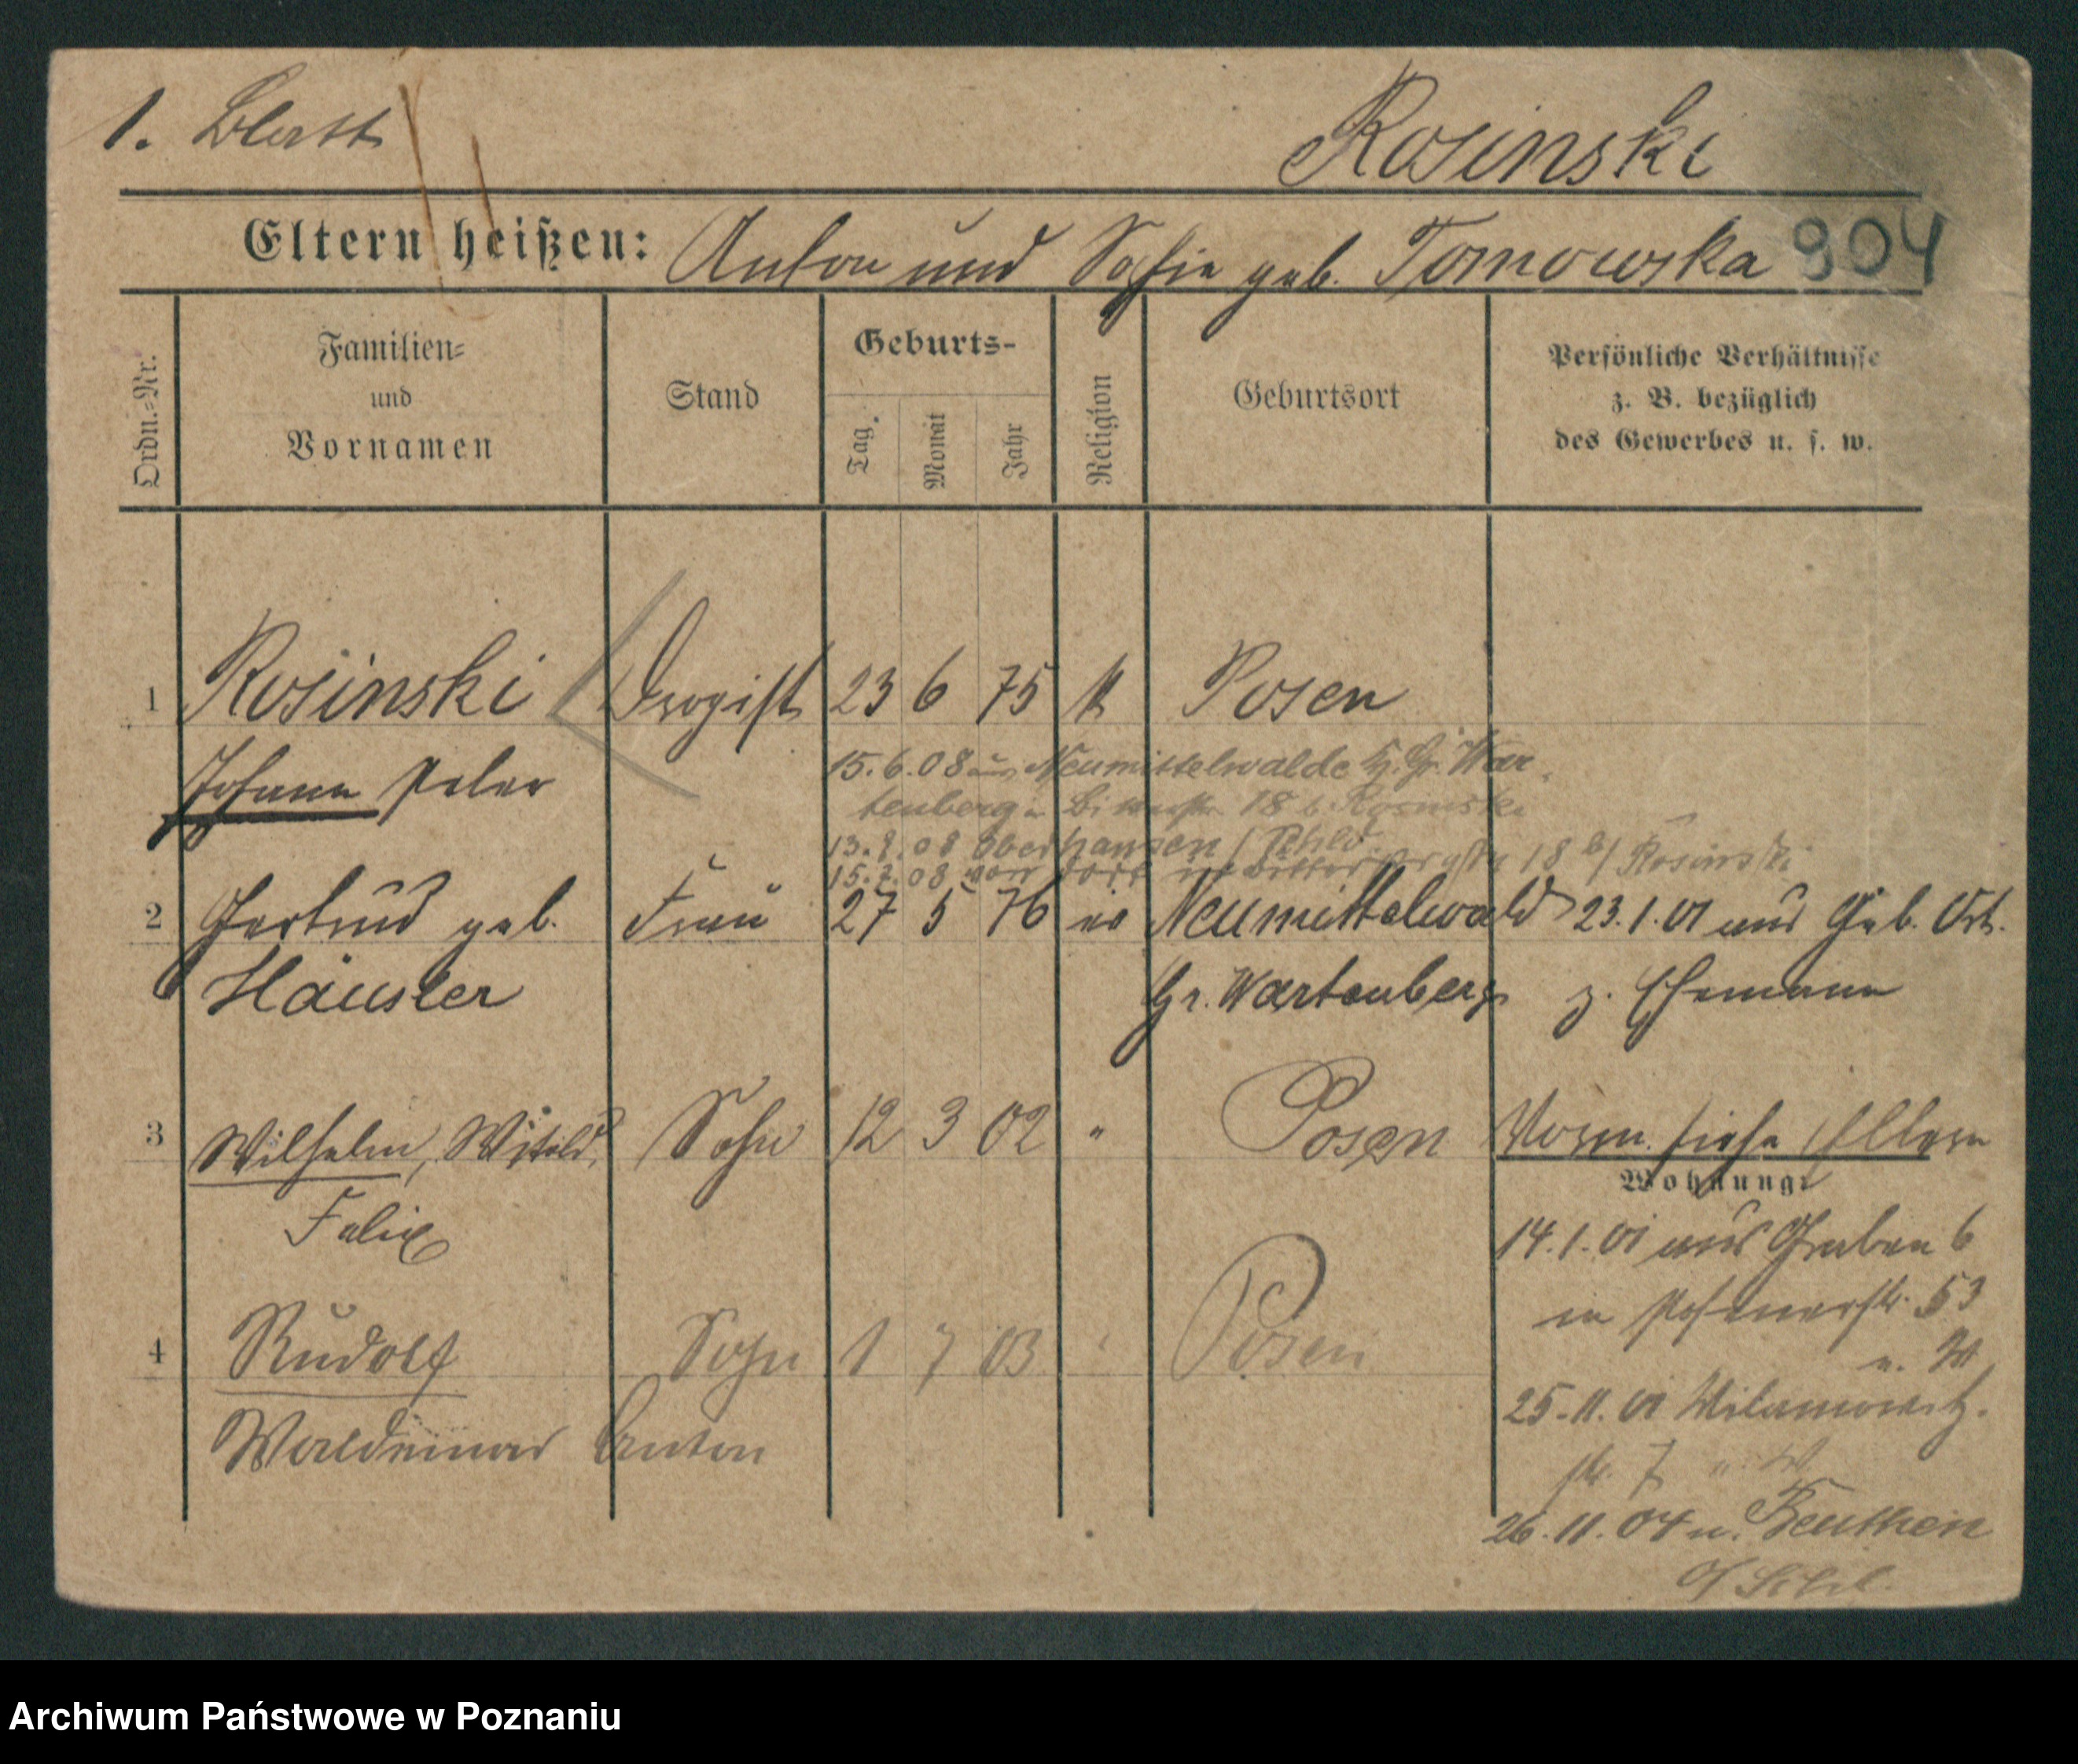 1. Blatt
Rosinski
Eltern heißen: Anton und Sofie geb. Tomowska 904
Ordn.=Nr.
Familien=
und
Vornamen
Stand
Geburts-
Tag.
Monat
Jahr
Religion
Geburtsort
Persönliche Verhältnisse
z. B. bezüglich
des Gewerbes u. s. w.
1 Rosinski Drogist 23 6 75 k Posen
Johann Peter
15.6.08 aus Neumittelwalde Kr. Gr. War-
tenberg n. 18 b. Rosinski
13.7.08 Oberhausen /
15.7.08 von dort 18 b/ Rosinski
2 Gertrud geb. Frau 27 5 76 ev Neumittelwald 23.1.01 aus Geb. Ort.
Häusler Gr. Wartenberg z. Ehemann
3 Wilhelm, Witold, Sohn 12 3 02 " Posen Vorm. siehe Eltern
Felix
Wohnung:
14.1.01 aus Graben 6
in Posenerstr. 53
b. W
4 Rudolf Sohn 1 7 03 Posen
25.11.01 Wilamowitz.
Waldemar Anton
str. 7
26.11.04 n. Beuthen
O/Schl.
Archiwum Państwowe w Poznaniu